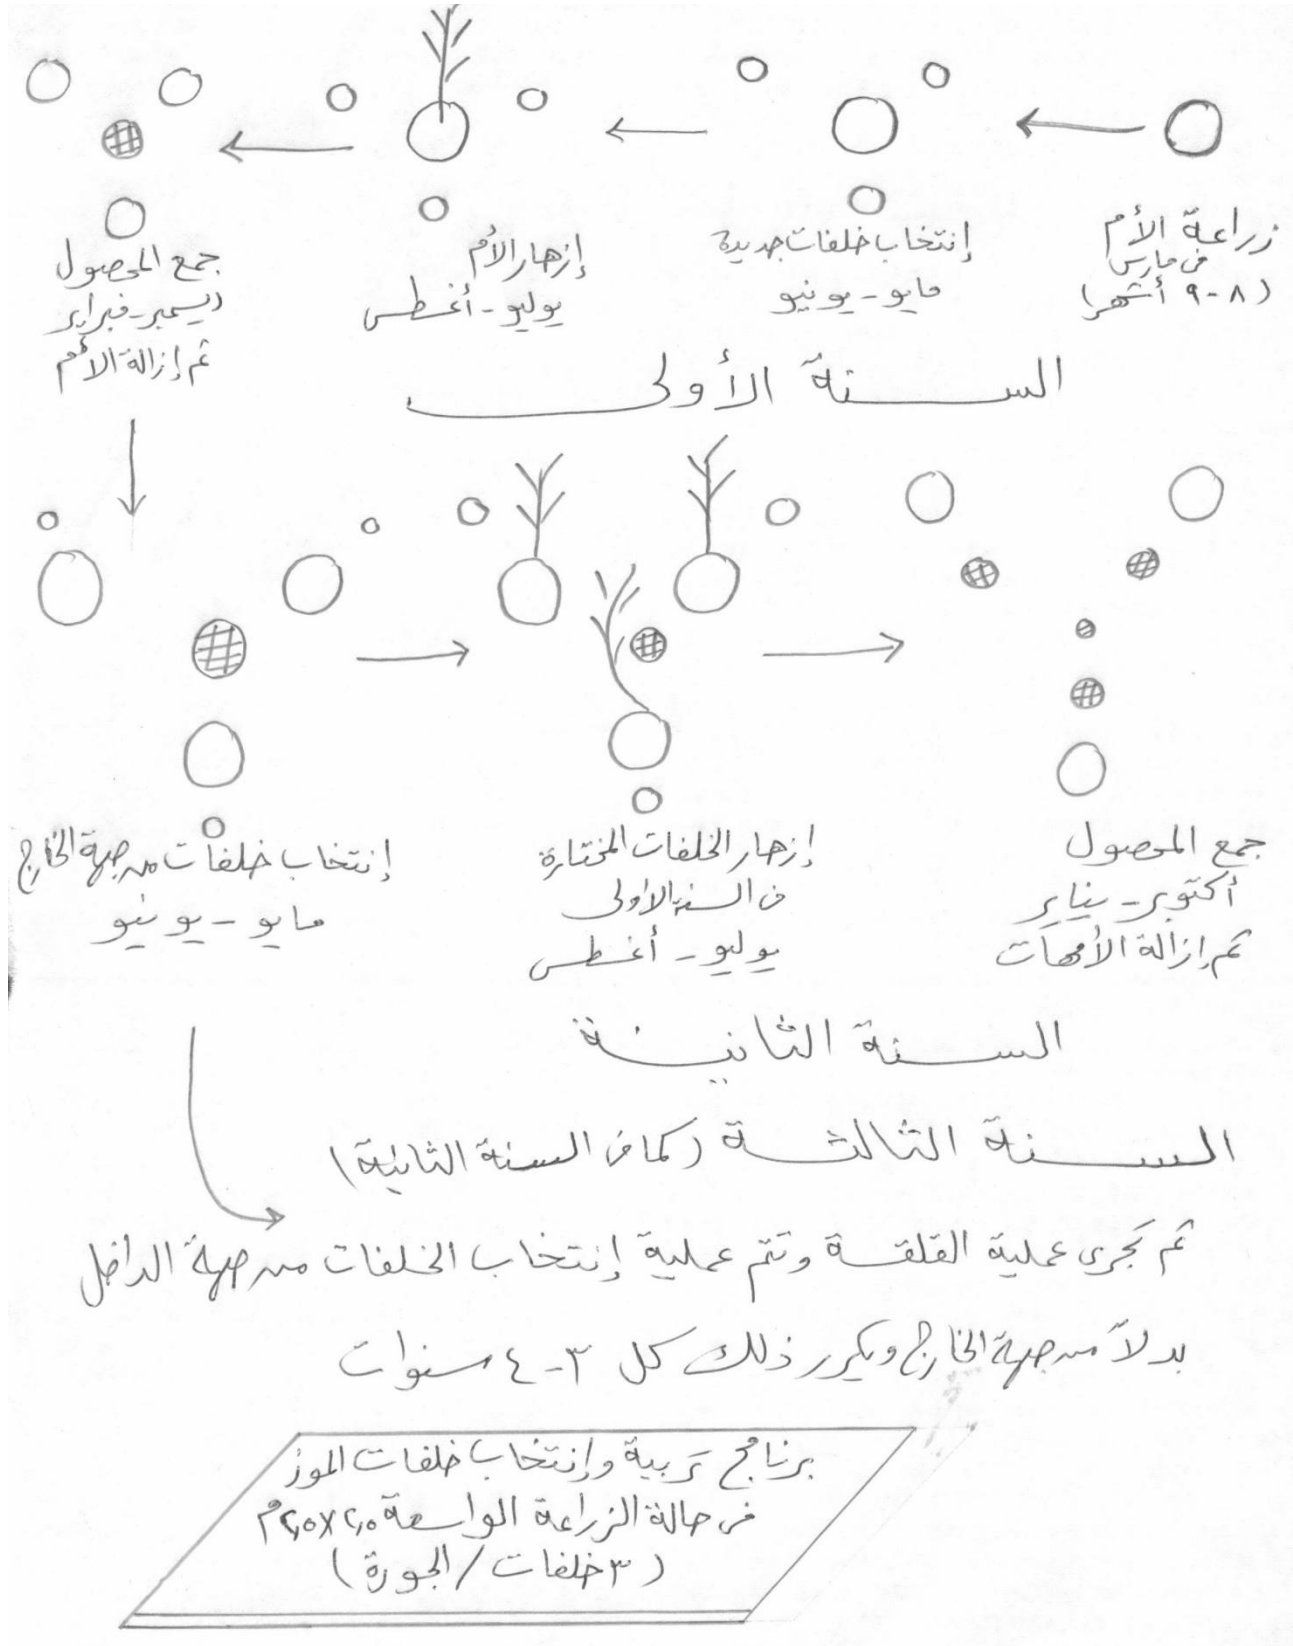 زراعة الأم
فى مارس
(٨-٩ أشهر)
إنتخاب خلفات جديدة
مايو - يونيو
إزهار الأم
يوليو - أغسطس
جمع المحصول
ديسمبر - فبراير
ثم إزالة الأم
السنة الأولى
إنتخاب خلفات من جهة الخارج
مايو - يونيو
إزهار الخلفات المختارة
فى السنة الأولى
يوليو - أغسطس
جمع المحصول
أكتوبر - يناير
ثم إزالة الأمهات
السنة الثانية
السنة الثالثة (كما فى السنة الثانية)
ثم تجرى عملية القلقسة وتتم عملية إنتخاب الخلفات من جهة الداخل
بدلاً من جهة الخارج ويكرر ذلك كل ٣-٤ سنوات
برنامج تربية وإنتخاب خلفات الموز
فى حالة الزراعة الواسعة ٢,٥×٢,٥م
(٣ خلفات / الجورة)